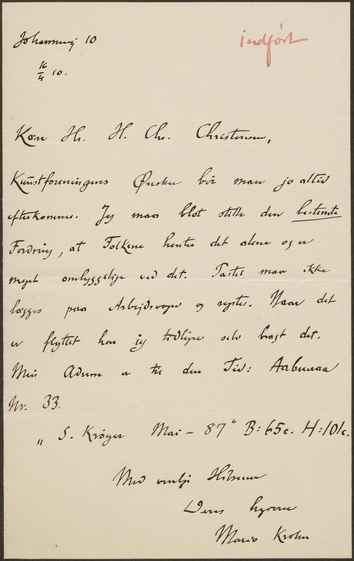 Johannevej 10
indført
16/4 10.
Kære Hr. H. Chr. Christensen,
Kunstforeningens Ønsker bør man jo altid
efterkomme. Jeg maa blot stille den bestemte
Fordring, at Folkene henter det alene og er
meget omhyggelige ved det. Pastel maa ikke
lægges paa Arbejdsvogn og rystes. Naar det
er flyttet har jeg selv bragt det.
Min Adresse er til den Tid: Aabenraa
Nr. 33.
„ S. Krøyer Mai – 87" B: 65 c. H: 101 c.
Med venlig Hilsen
Deres hengivne
Mario Krohn